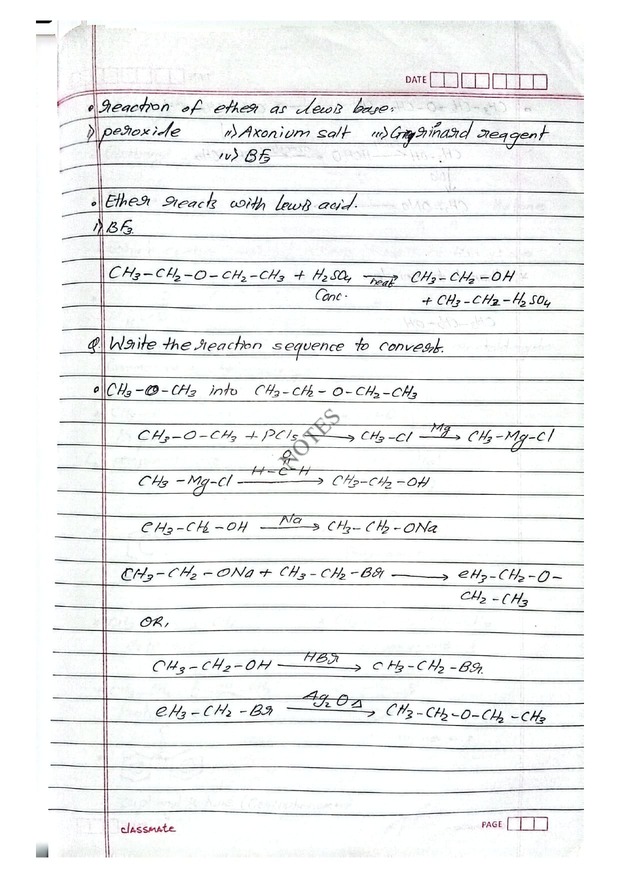 DATE
• reaction of ether as lewis base.
i) peroxide ii) Axonium salt iii) Grignard reagent
iv) BF3
• Ether reacts with lewis acid.
i) BF3.
CH3-CH2-O-CH2-CH3 + H2SO4 heat→ CH3-CH2-OH
Conc. + CH3-CH2-H2SO4
Q. Write the reaction sequence to convert.
• CH3-O-CH3 into CH3-CH2-O-CH2-CH3
CH3-O-CH3 + PCl5 → CH3-Cl Mg→ CH3-Mg-Cl
O
CH3-Mg-Cl H-C-H→ CH3-CH2-OH
CH3-CH2-OH Na→ CH3-CH2-ONa
CH3-CH2-ONa + CH3-CH2-Br → CH3-CH2-O-
CH2-CH3
OR,
CH3-CH2-OH HBr→ CH3-CH2-Br.
CH3-CH2-Br Ag2O Δ→ CH3-CH2-O-CH2-CH3
NOTES
classmate PAGE